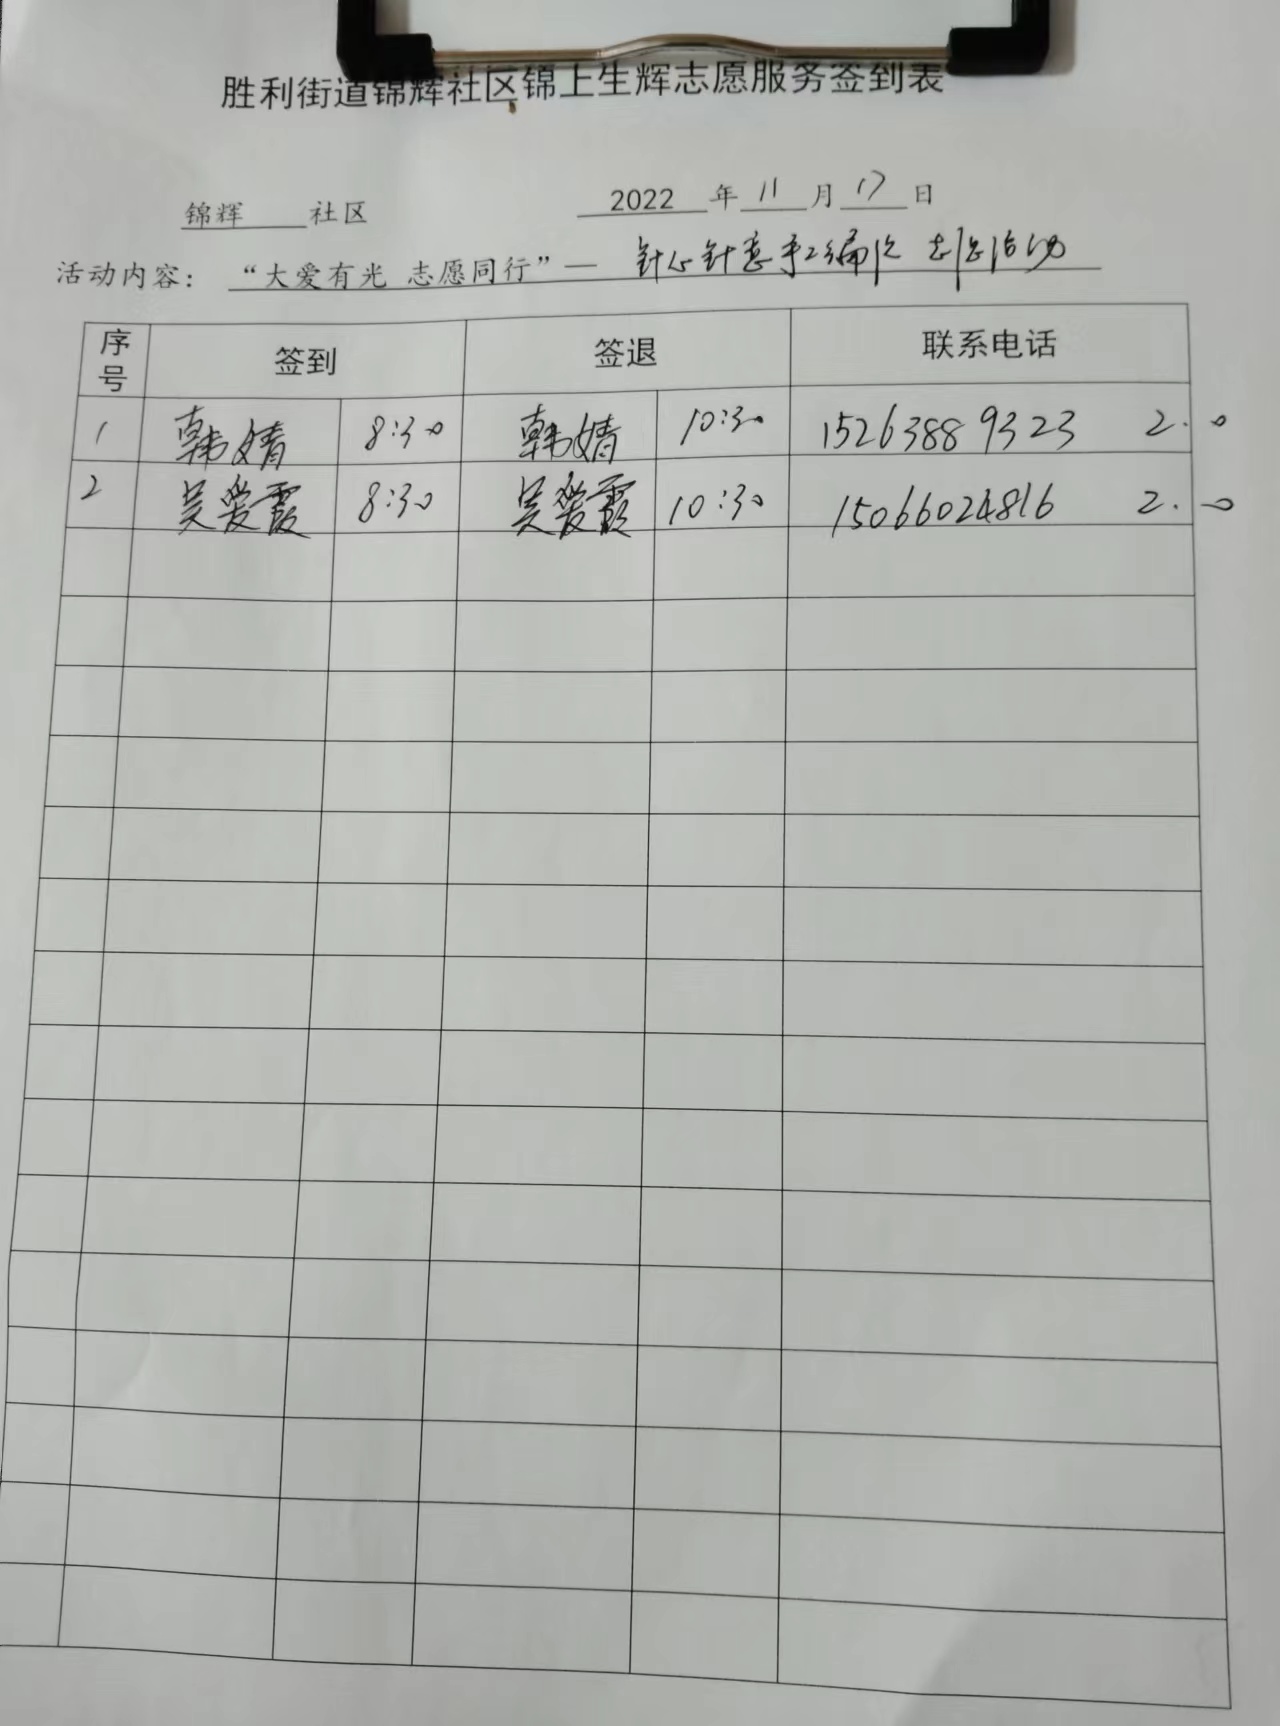 胜利街道锦辉社区锦上生辉志愿服务签到表
锦辉 社区 2022 年 11 月 17 日
活动内容：“大爱有光 志愿同行”— 针心针意手工编织 志愿活动
序号 签到 签退 联系电话
1 韩婧 8:30 韩婧 10:30 15263889323 2.0
2 吴爱霞 8:30 吴爱霞 10:30 15066024816 2.0